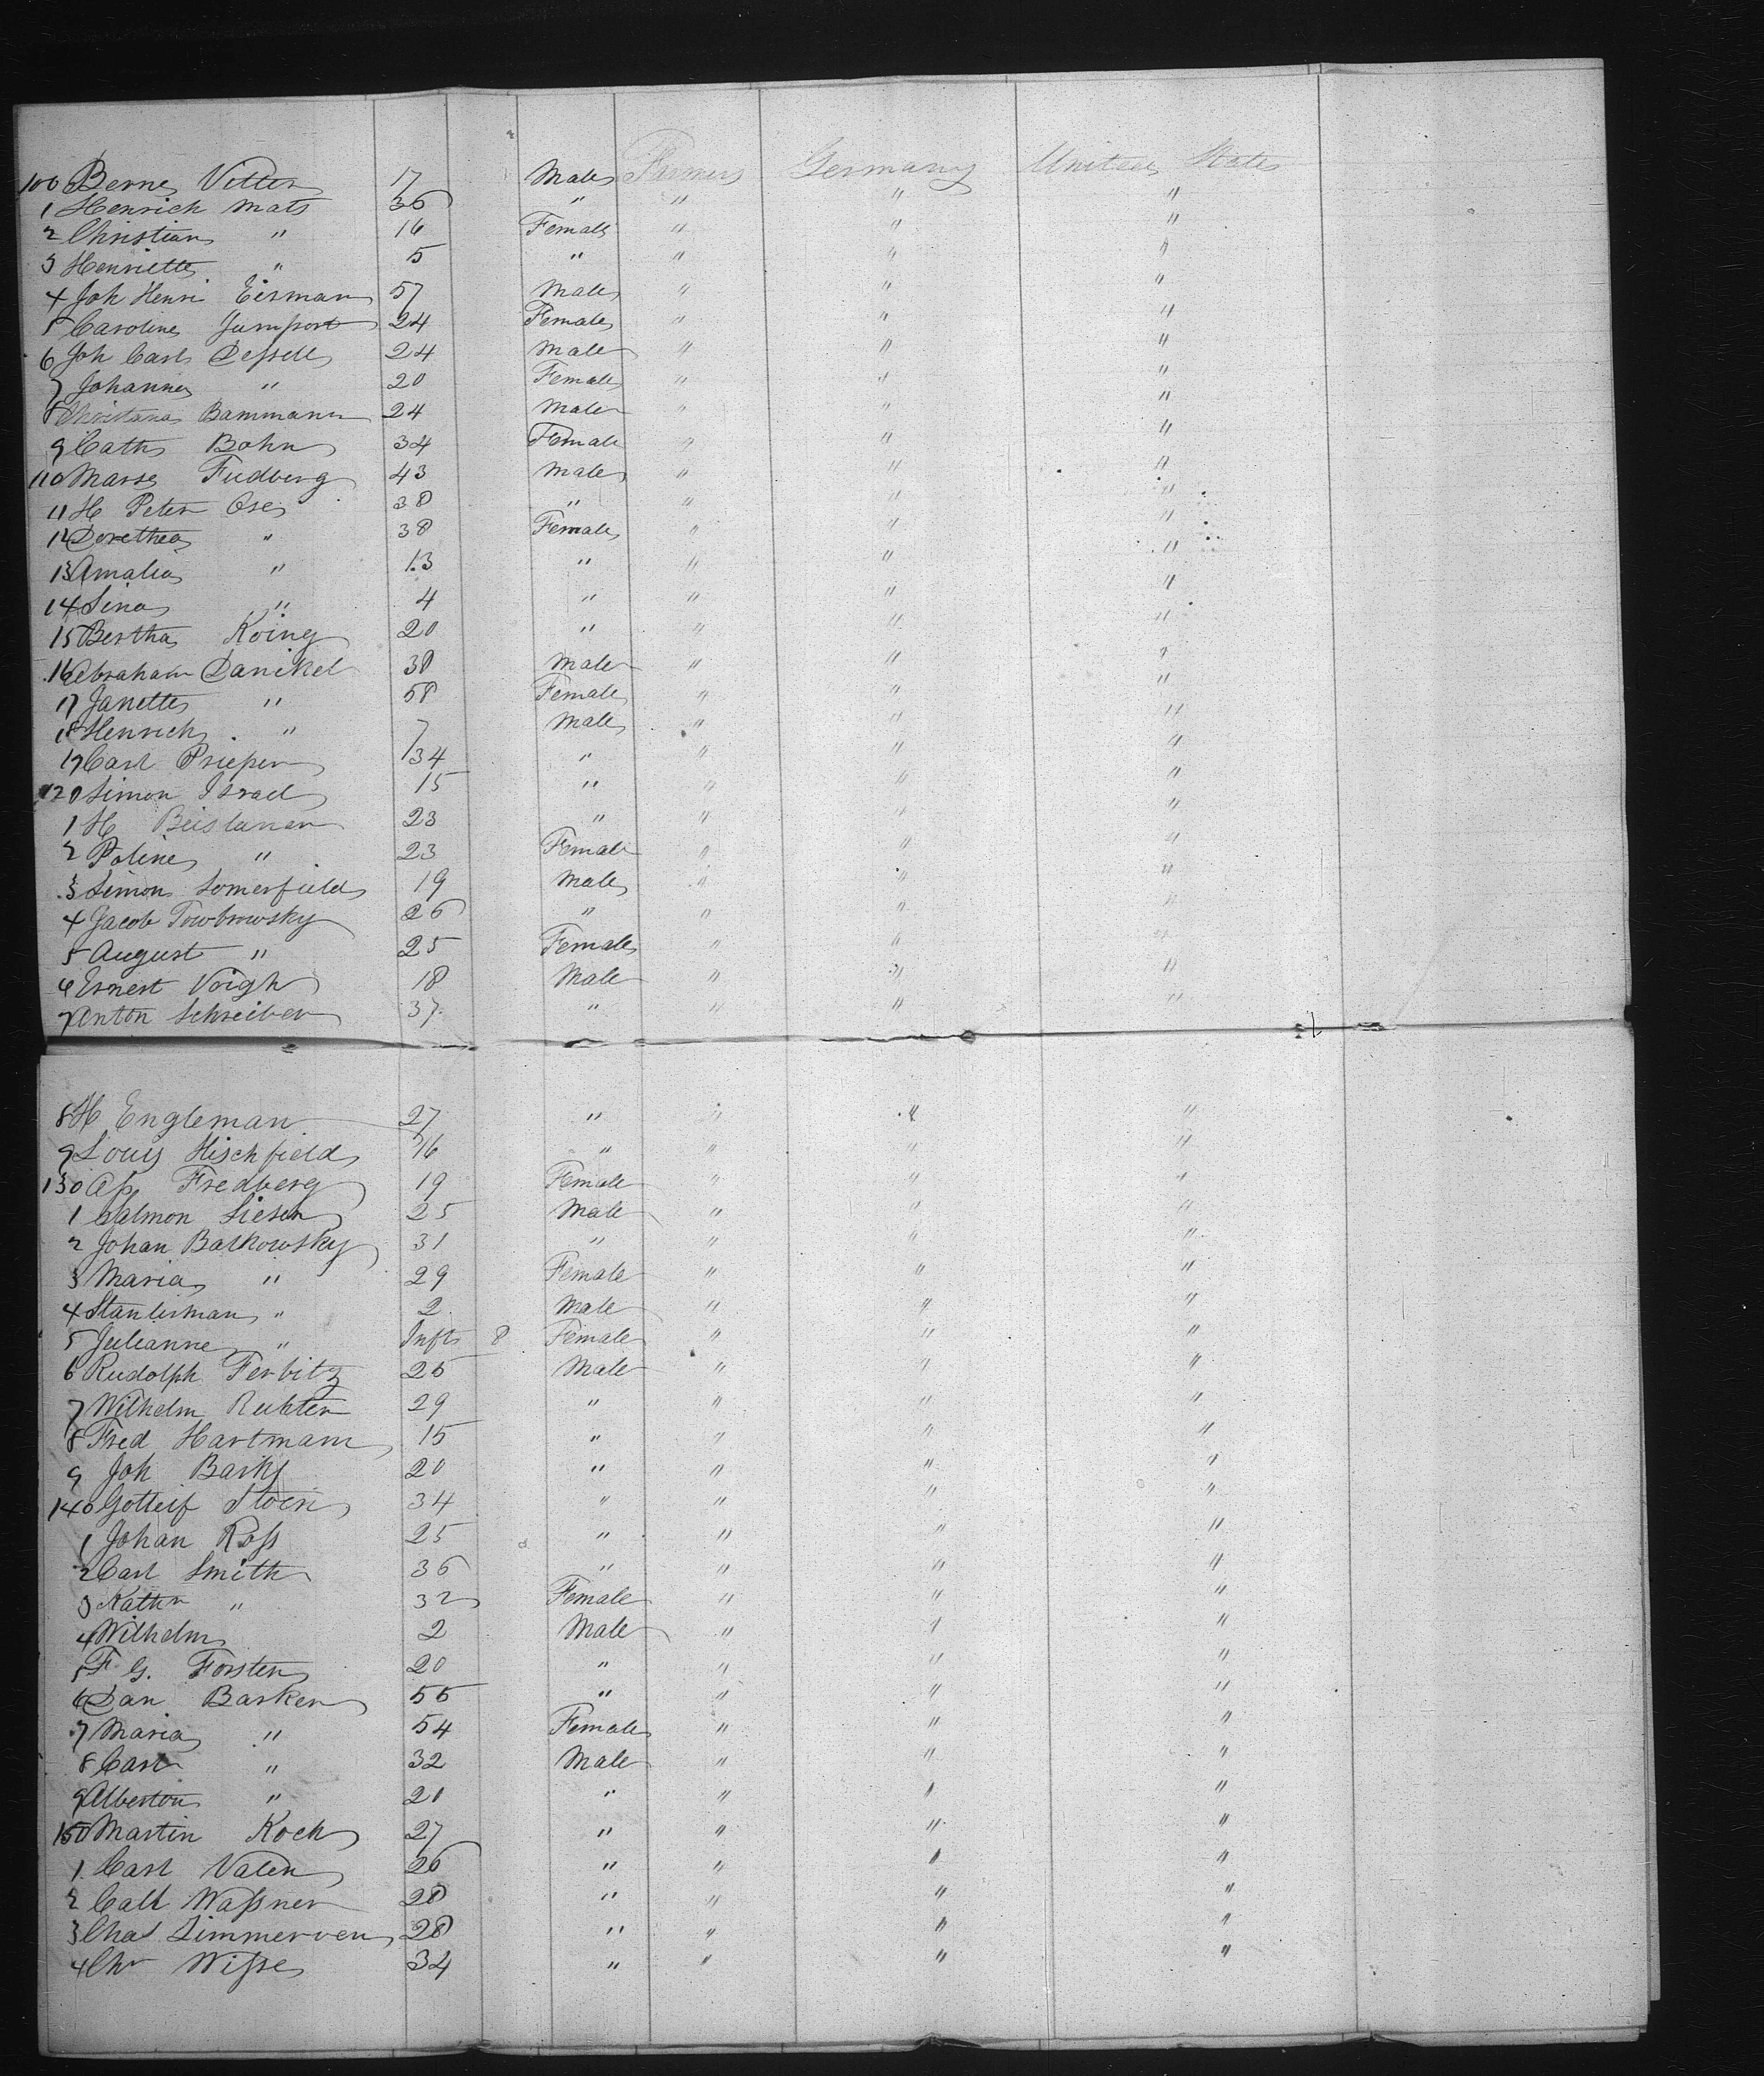 100 Berne Vetter 17 Male Farmers Germany United States
1 Henrich Mats 36 " " " "
2 Christian " 16 Female " " "
3 Henriette " 5 " " " "
4 Joh Henri Eisman 57 Male " " "
5 Caroline Jumport 24 Female " " "
6 Joh Carl Dessell 24 Male " " "
7 Johanna " 20 Female " " "
8 Christana Bammann 24 Male " " "
9 Cath Bohn 34 Female " " "
110 Marse Fudberg 43 Male " " "
11 H Peter Ose 38 " " " "
12 Dorethea " 38 Female " " "
13 Amalia " 13 " " " "
14 Lina " 4 " " " "
15 Bertha Koing 20 " " " "
16 Abraham Danikel 38 Male " " "
17 Janette " 58 Female " " "
18 Henrich " 7 Male " " "
19 Carl Prieper 34 " " " "
120 Simon Israel 15 " " " "
1 H Beislaner 23 " " " "
2 Poline " 23 Female " " "
3 Simon Somerfield 19 Male " " "
4 Jacob Towbrowsky 26 " " " "
5 August " 25 Female " " "
6 Ernest Voigh 18 Male " " "
7 Anton Schreiber 37 " " " "
8 H Engleman 27 " " " "
9 Louis Hischfield 16 " " " "
130 Fredberg 19 Female " " "
1 Salmon Siesen 25 Male " " "
2 Johan Balkowsky 31 " " " "
3 Maria " 29 Female " " "
4 Stanlisman " 2 Male " " "
5 Juleanne " Infts 8 Female " " "
6 Rudolph Ferbitz 25 Male " " "
7 Wilhelm Rukter 29 " " " "
8 Fred Hartmann 15 " " " "
9 Joh 20 " " " "
140 Gotteif Stoin 34 " " " "
1 Johan Ross 25 " " " "
2 Carl Smith 36 " " " "
3 Kathr " 32 Female " " "
4 Wilhelm 2 Male " " "
5 F. G. Forster 20 " " " "
6 Dan Barker 55 " " " "
7 Maria " 54 Female " " "
8 Carl " 32 Male " " "
9 Alberton " 20 " " " "
150 Martin Koch 27 " " " "
1 Carl Valen 26 " " " "
2 Call Wassner 28 " " " "
3 Chas Zimmerven 28 " " " "
4 Chr Wisse 34 " " " "